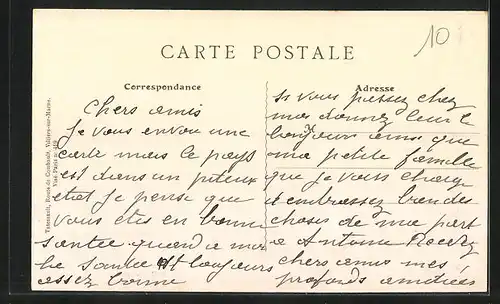 10
CARTE POSTALE
Correspondance
Adresse
Chers amis
Je vous envoi une
carte mais le pays
est dans un piteux
etat je pense que
vous etes en bonne
santée quand a moi
la santée est toujours
assez bonne
si vous passez chez
moi donnez leur le
bonjour ainsi que
ma petite famille
que je vous charge
d embrassez bien des
choses de ma part
a Antoine
chers amis mes
profonds amitiées
Thévenault, Route de Combault, Villiers-sur-Marne.
Visé Paris n° 418